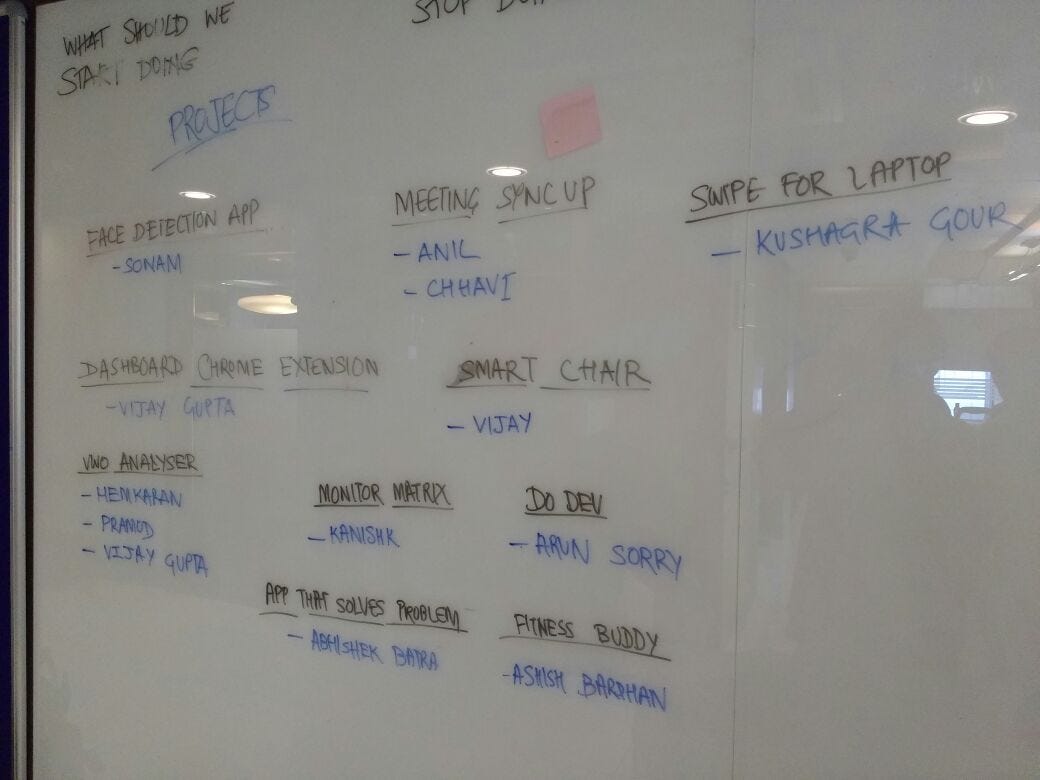 WHAT SHOULD WE
START DOING
STOP
PROJECTS
FACE DETECTION APP
- SONAM
MEETING SYNC UP
- ANIL
- CHHAVI
SWIPE FOR LAPTOP
- KUSHAGRA GOUR
DASHBOARD CHROME EXTENSION
- VIJAY GUPTA
SMART CHAIR
- VIJAY
VWO ANALYSER
- HEMKARAN
- PRAMOD
- VIJAY GUPTA
MONITOR MATRIX
- KANISHK
DO DEV
- ARUN SORRY
APP THAT SOLVES PROBLEM
- ABHISHEK BATRA
FITNESS BUDDY
- ASHISH BARDHAN